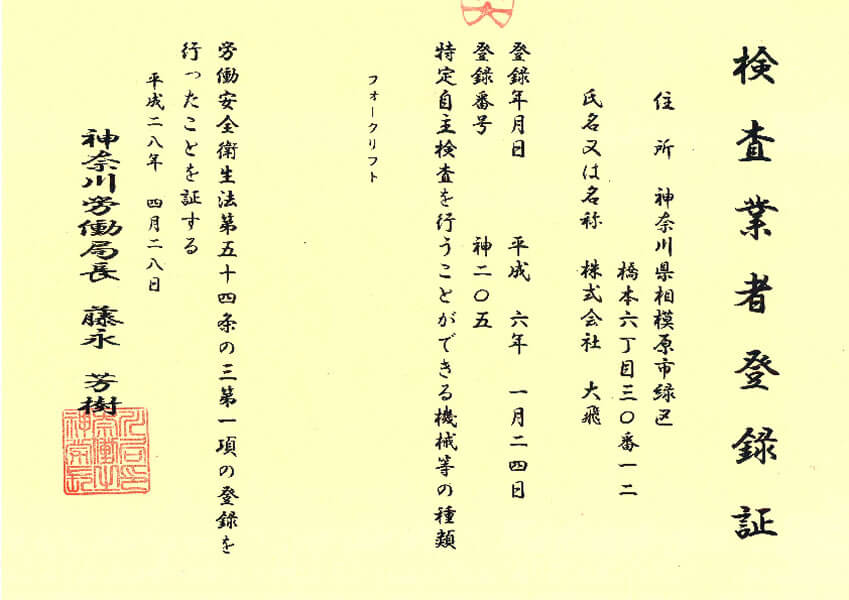 検査業者登録証
住所 神奈川県相模原市緑区
橋本六丁目三〇番一二
氏名又は名称 株式会社 大飛
登録年月日 平成 六年 一月二四日
登録番号 神二〇五
特定自主検査を行うことができる機械等の種類
フォークリフト
労働安全衛生法第五十四条の三第一項の登録を
行ったことを証する
平成二八年 四月二八日
神奈川労働局長 藤永 芳樹